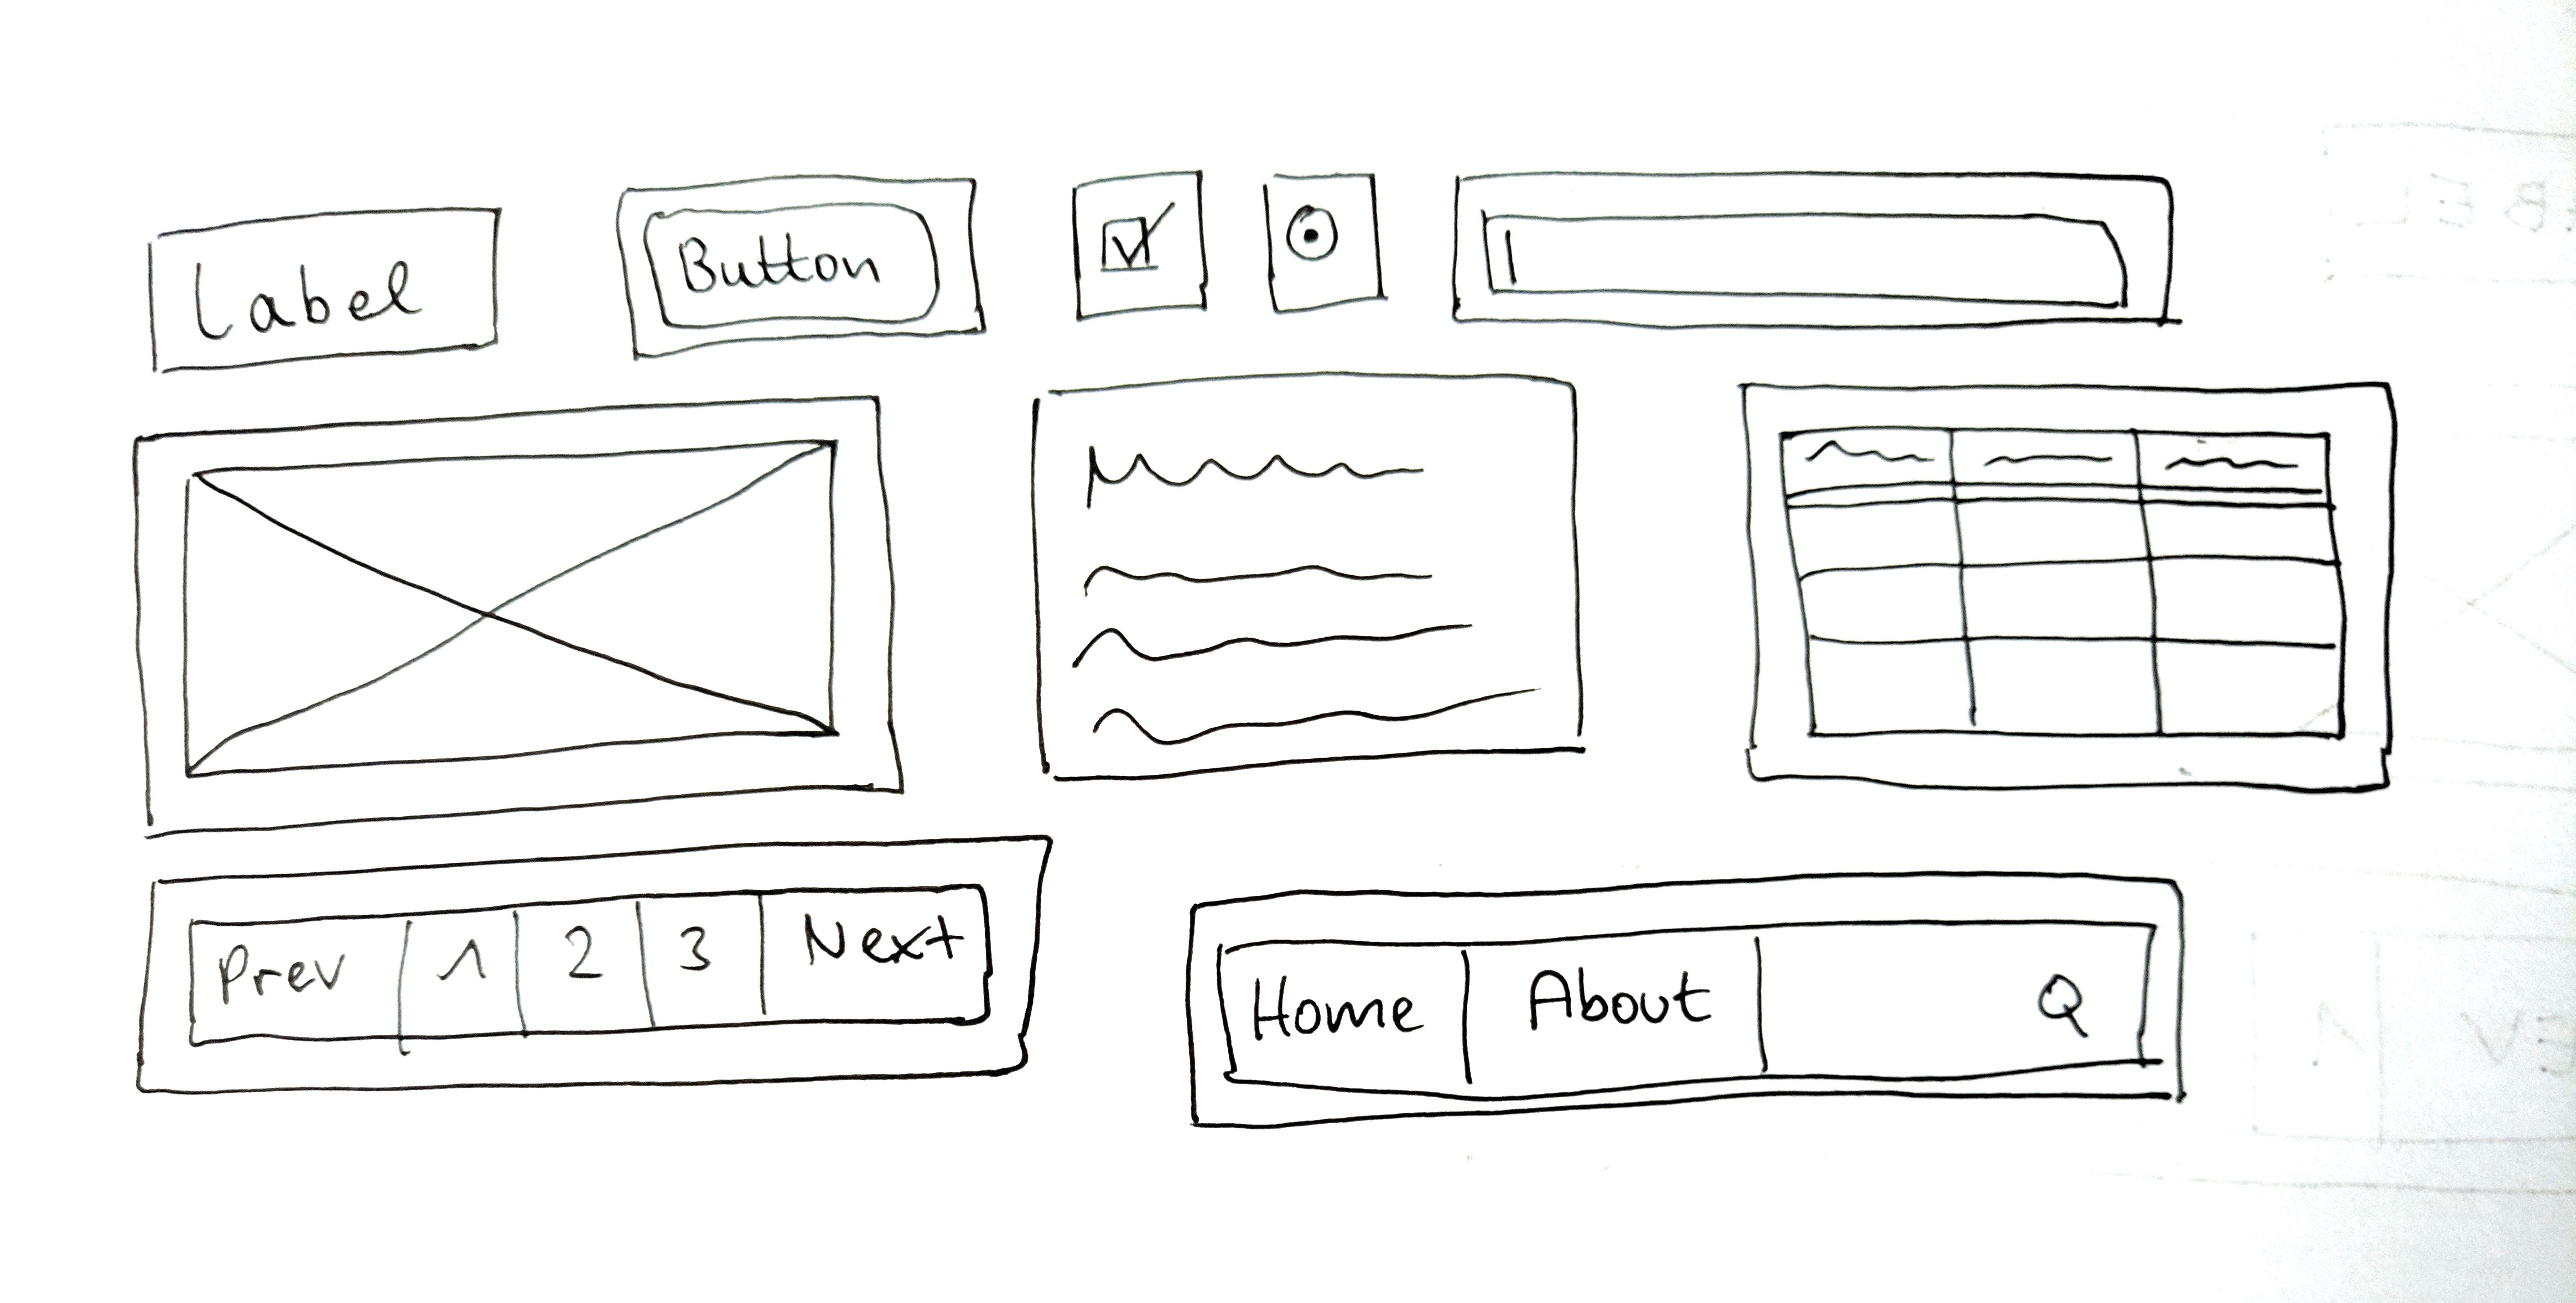 Label
Button
Prev 1 2 3 Next
Home About Q